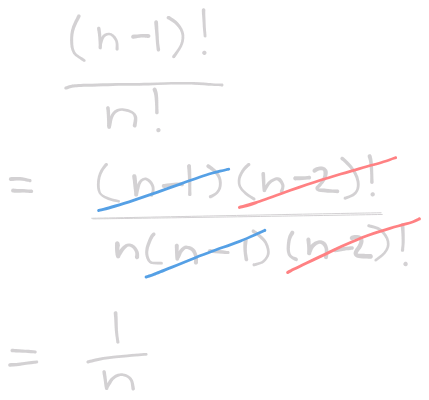 (n-1)!
n!
= (n-1)(n-2)!
n(n-1)(n-2)!
= 1
n